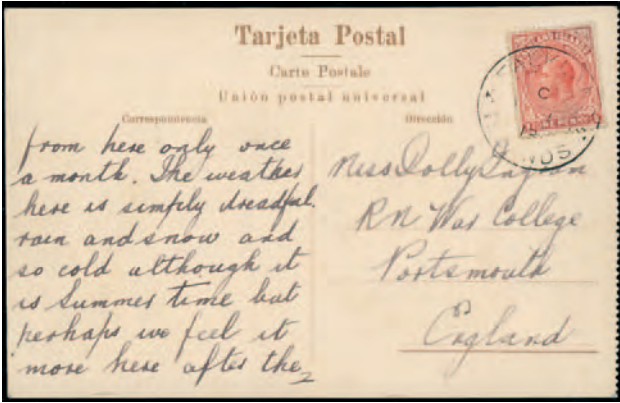 Tarjeta Postal
Carte Postale
Unión postal universal
Correspondencia
Dirección
from here only once
a month. The weather
here is simply dreadful.
rain and snow and
so cold although it
is Summer time but
perhaps we feel it
more here after the
Miss Dolly
RN War College
Portsmouth
England